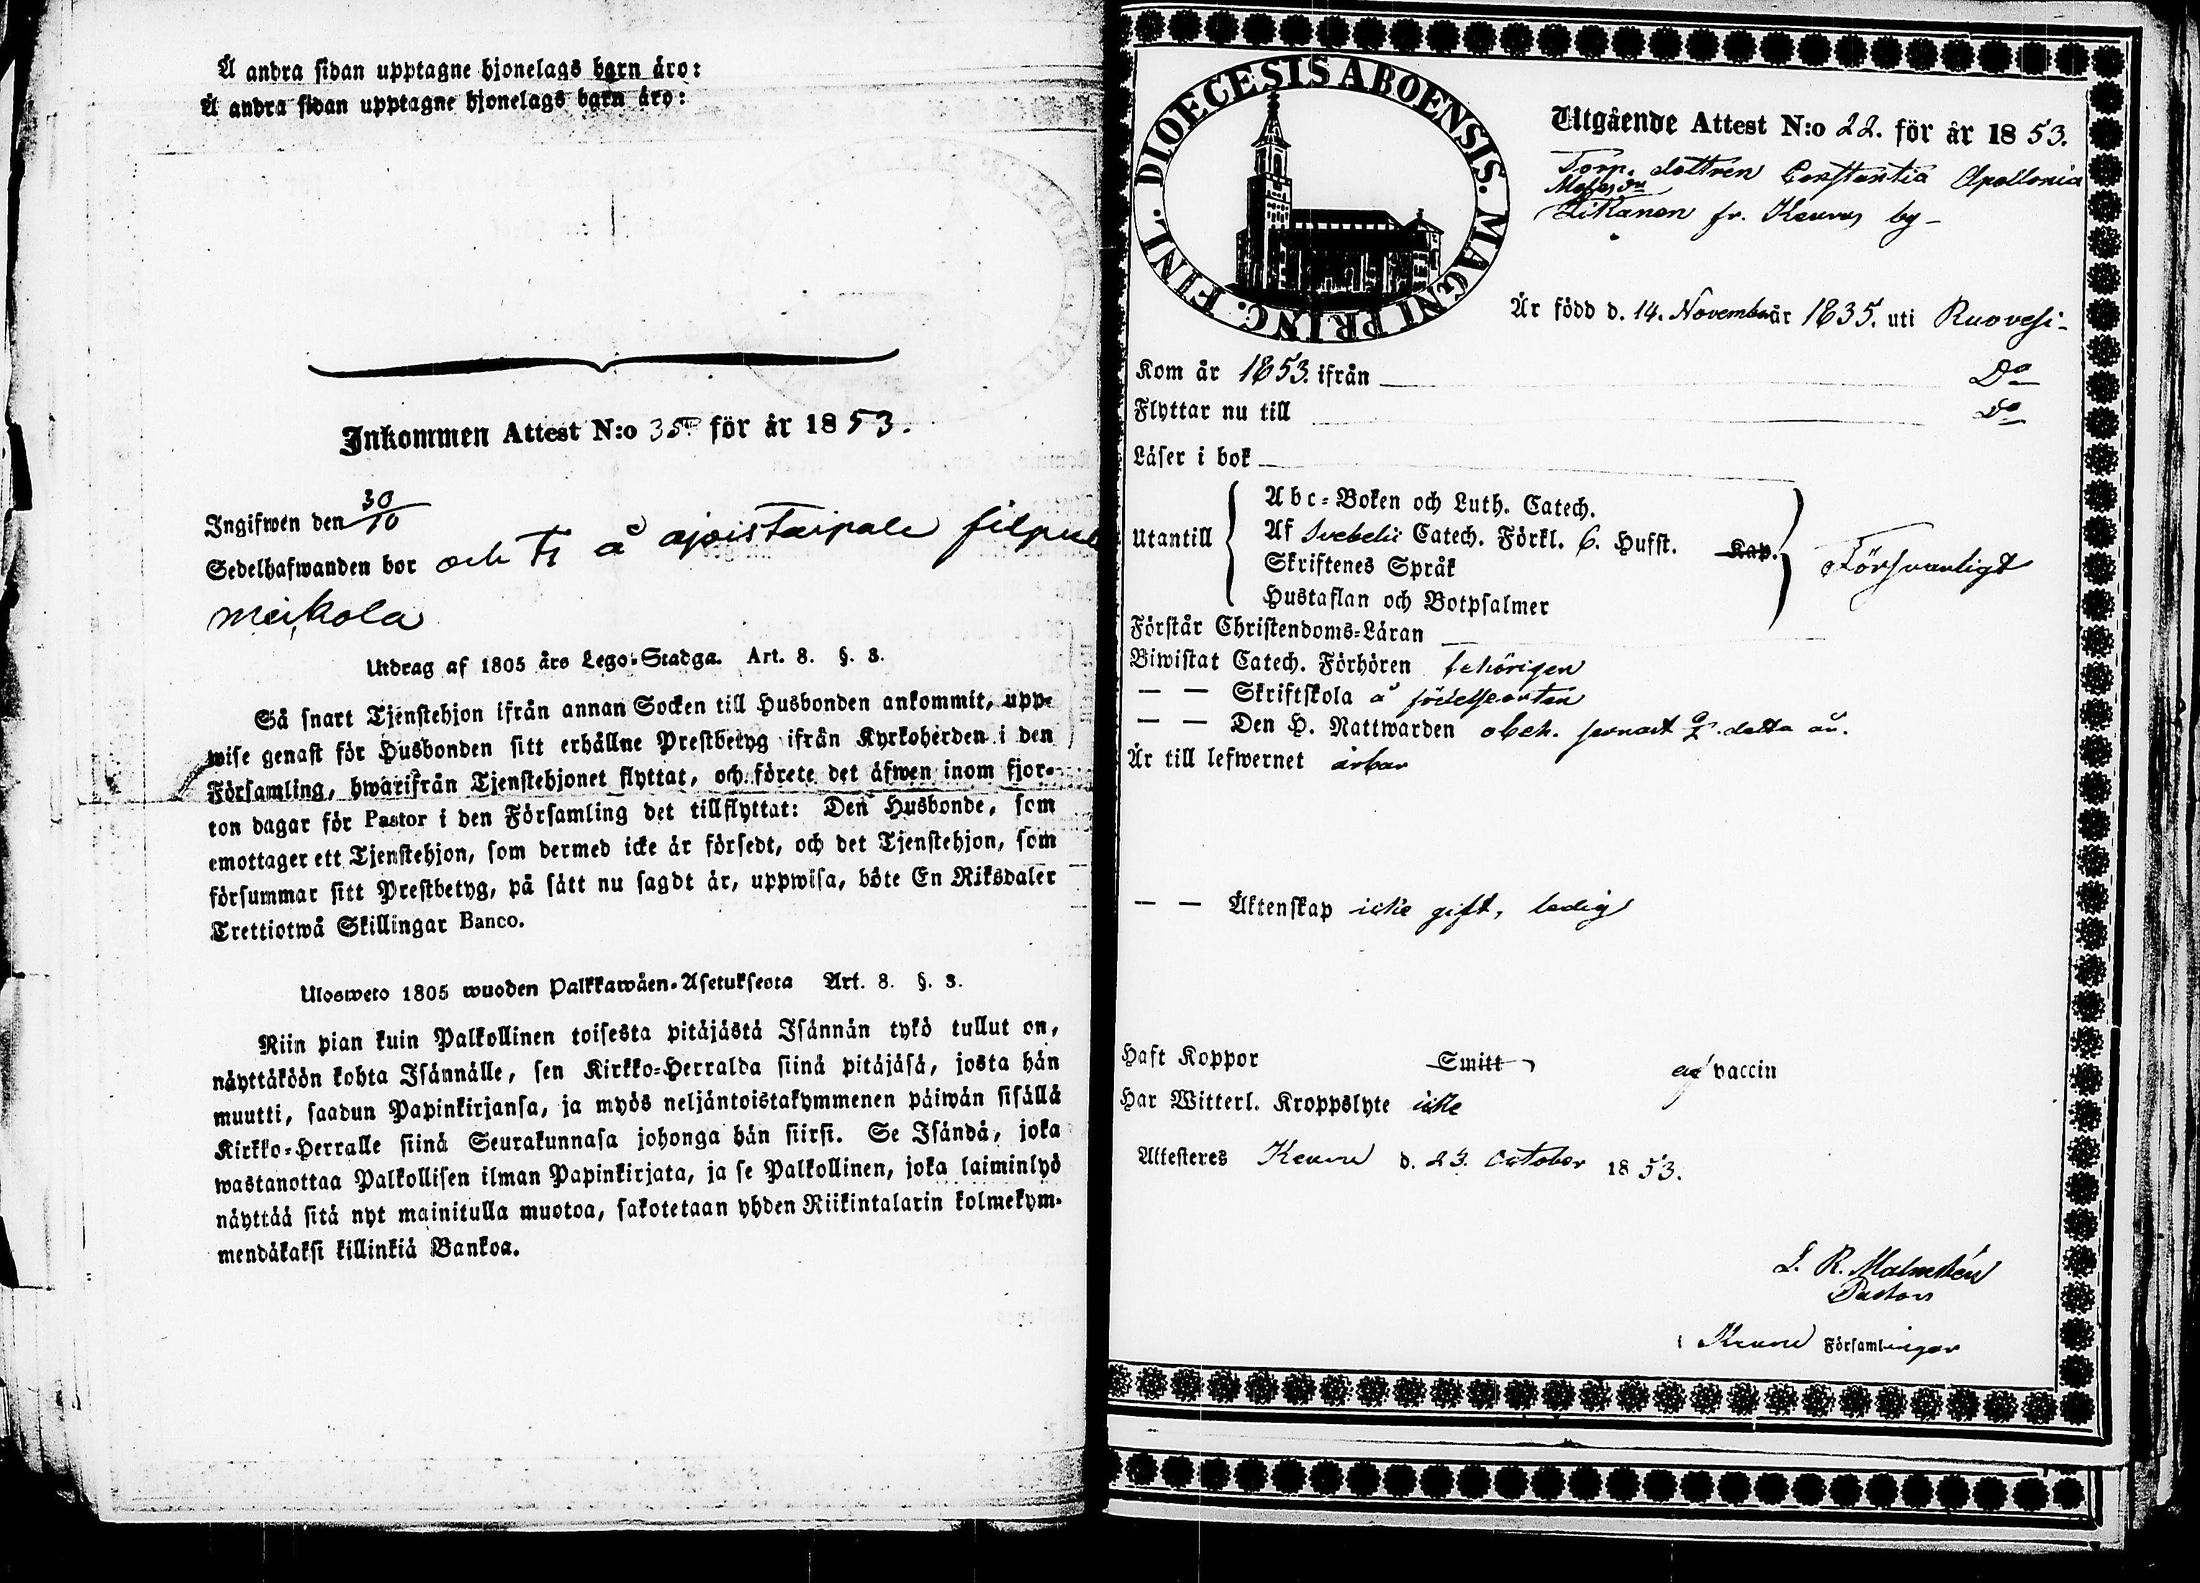 Å andra sidan upptagne hjonelags barn äro:
Å andra sidan upptagne hjonelags barn äro:
Inkommen Attest N:o 35 för år 1853.
Ingifwen den 30/10
Sedelhafwanden bor och Tj å ajoistaipale filpula
meikola
Utdrag af 1805 års Lego-Stadga. Art. 8. §. 3.
Så snart Tjenstehjon ifrån annan Socken till Husbonden ankommit, upp-
wise genast för Husbonden sitt erhållne Prestbetyg ifrån Kyrkoherden i den
Församling, hwarifrån Tjenstehjonet flyttat, och förete det äfwen inom fjor-
ton dagar för Pastor i den Församling det tillflyttat: Den Husbonde, som
emottager ett Tjenstehjon, som dermed icke är försedt, och det Tjenstehjon, som
försummar sitt Prestbetyg, på sätt nu sagdt är, uppwisa, böte En Riksdaler
Trettiotwå Skillingar Banco.
Ulosweto 1805 wuoden Palkkawäen-Asetuksesta Art. 8. §. 3.
Niin pian kuin Palkollinen toisesta pitäjästä Isännän tykö tullut on,
näyttäköön kohta Isännälle, sen Kirkko-Herralda siinä pitäjäsä, josta hän
muutti, saadun Papinkirjansa, ja myös neljäntoistakymmenen päiwän sisällä
Kirkko-Herralle siinä Seurakunnasa johonga hän siirsi. Se Isändä, joka
wastanottaa Palkollisen ilman Papinkirjata, ja se Palkollinen, joka laiminlyö
näyttää sitä nyt mainitulla muotoa, sakotetaan yhden Riikintalarin kolmekym-
mendäkaksi killinkiä Bankoa.
DIOECESIS ABOENSIS. MAGNI PRINC. FINL.
Utgående Attest N:o 22. för år 1853.
Torp. dottren Constantia Apollonia
Matsdr
Likanen fr. Keuru by
Är född d. 14. November år 1835. uti Ruovesi
Kom år 1853. ifrån Do
Flyttar nu till Do
Läser i bok
Utantill
Abc-Boken och Luth. Catech.
Af Svebelii Catech. Förkl. 6. Hufst. Kap.
Skriftenes Språk
Hustaflan och Botpsalmer
Försvarligt
Förstår Christendoms-Läran
Biwistat Catech. Förhören behörigen
— — Skriftskola å födelseorten
— — Den H. Nattwarden obeh. senast detta år.
Är till lefwernet ärbar
— — Äktenskap icke gift, ledig
Haft Koppor Smitt ej vaccin
Har Witterl. Kroppslyte icke
Attesteres Keuru d. 23. October 1853.
L. R. Malmstén
Pastor
i Keuru Församlingar